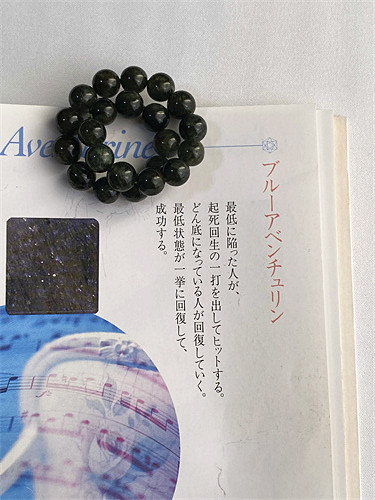 Ave rine
ブルーアベンチュリン
最低に陥った人が、
起死回生の一打を出してヒットする。
どん底になっている人が回復していく。
最低状態が一挙に回復して、
成功する。